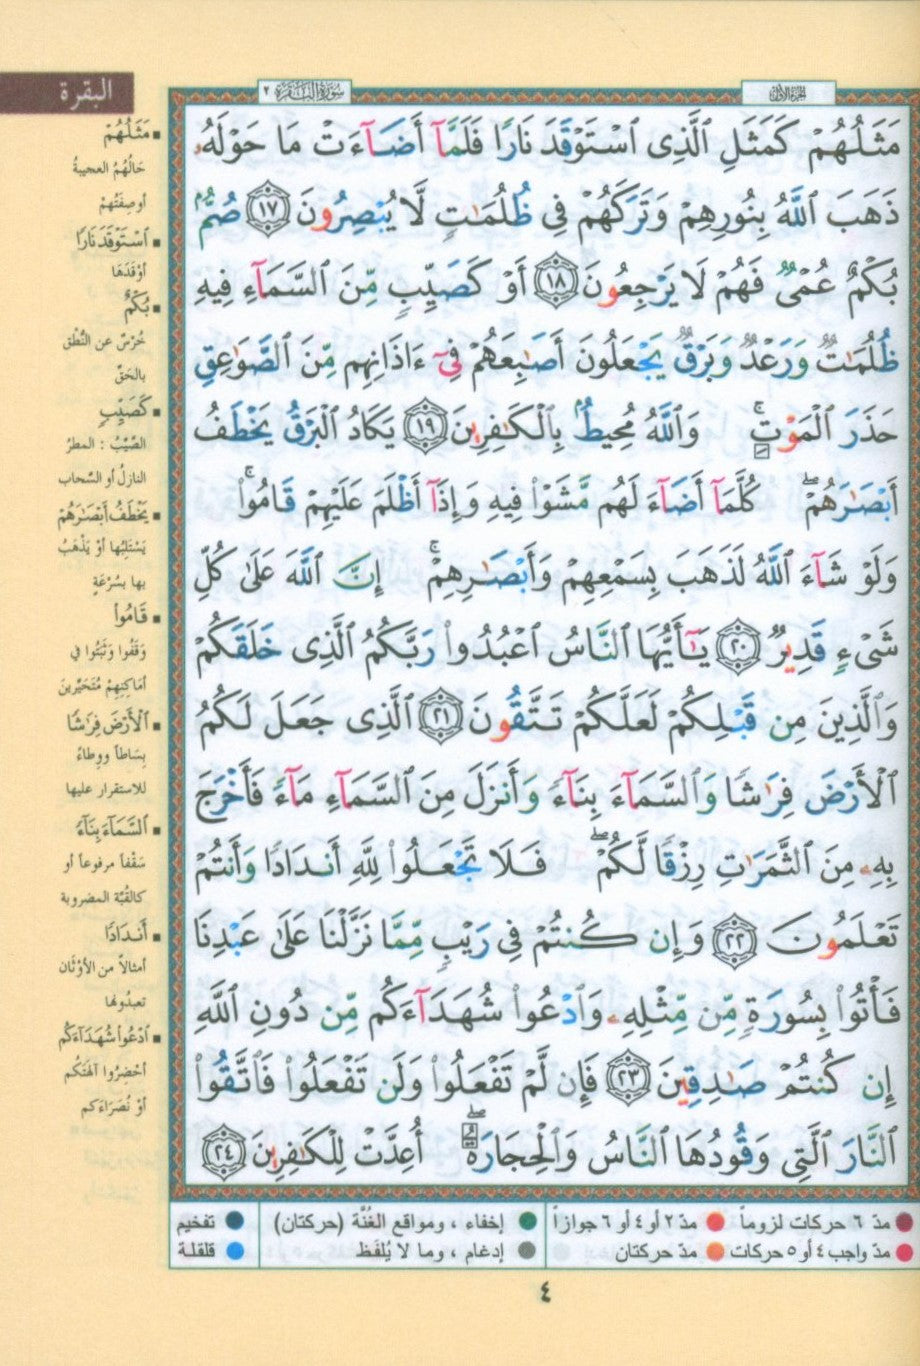 الجزء الأول
سورة البقرة ٢
البقرة
مَثَلُهُمْ كَمَثَلِ ٱلَّذِى ٱسْتَوْقَدَ نَارًا فَلَمَّآ أَضَآءَتْ مَا حَوْلَهُۥ
ذَهَبَ ٱللَّهُ بِنُورِهِمْ وَتَرَكَهُمْ فِى ظُلُمَـٰتٍ لَّا يُبْصِرُونَ ١٧ صُمٌّۢ
بُكْمٌ عُمْىٌ فَهُمْ لَا يَرْجِعُونَ ١٨ أَوْ كَصَيِّبٍ مِّنَ ٱلسَّمَآءِ فِيهِ
ظُلُمَـٰتٌ وَرَعْدٌ وَبَرْقٌ يَجْعَلُونَ أَصَـٰبِعَهُمْ فِىٓ ءَاذَانِهِم مِّنَ ٱلصَّوَٰعِقِ
حَذَرَ ٱلْمَوْتِ ۚ وَٱللَّهُ مُحِيطٌۢ بِٱلْكَـٰفِرِينَ ١٩ يَكَادُ ٱلْبَرْقُ يَخْطَفُ
أَبْصَـٰرَهُمْ ۖ كُلَّمَآ أَضَآءَ لَهُم مَّشَوْا۟ فِيهِ وَإِذَآ أَظْلَمَ عَلَيْهِمْ قَامُوا۟ ۚ
وَلَوْ شَآءَ ٱللَّهُ لَذَهَبَ بِسَمْعِهِمْ وَأَبْصَـٰرِهِمْ ۚ إِنَّ ٱللَّهَ عَلَىٰ كُلِّ
شَىْءٍ قَدِيرٌ ٢٠ يَـٰٓأَيُّهَا ٱلنَّاسُ ٱعْبُدُوا۟ رَبَّكُمُ ٱلَّذِى خَلَقَكُمْ
وَٱلَّذِينَ مِن قَبْلِكُمْ لَعَلَّكُمْ تَتَّقُونَ ٢١ ٱلَّذِى جَعَلَ لَكُمُ
ٱلْأَرْضَ فِرَٰشًا وَٱلسَّمَآءَ بِنَآءً وَأَنزَلَ مِنَ ٱلسَّمَآءِ مَآءً فَأَخْرَجَ
بِهِۦ مِنَ ٱلثَّمَرَٰتِ رِزْقًا لَّكُمْ ۖ فَلَا تَجْعَلُوا۟ لِلَّهِ أَندَادًا وَأَنتُمْ
تَعْلَمُونَ ٢٢ وَإِن كُنتُمْ فِى رَيْبٍ مِّمَّا نَزَّلْنَا عَلَىٰ عَبْدِنَا
فَأْتُوا۟ بِسُورَةٍ مِّن مِّثْلِهِۦ وَٱدْعُوا۟ شُهَدَآءَكُم مِّن دُونِ ٱللَّهِ
إِن كُنتُمْ صَـٰدِقِينَ ٢٣ فَإِن لَّمْ تَفْعَلُوا۟ وَلَن تَفْعَلُوا۟ فَٱتَّقُوا۟
ٱلنَّارَ ٱلَّتِى وَقُودُهَا ٱلنَّاسُ وَٱلْحِجَارَةُ ۖ أُعِدَّتْ لِلْكَـٰفِرِينَ ٢٤
■ مَثَلُهُمْ
حَالُهُمُ العجيبةُ
أو صِفَتُهمْ
■ ٱسْتَوْقَدَ نَارًا
أوْقَدَهَا
■ بُكْمٌ
خُرْسٌ عن النُّطْقِ
بالحَقِّ
■ كَصَيِّبٍ
الصَّيِّبُ : المطرُ
النازلُ أو السَّحاب
■ يَخْطَفُ أَبْصَـٰرَهُمْ
يَسْتَلِبُها أوْ يَذْهَبُ
بها بسُرْعَةٍ
■ قَامُوا۟
وَقَفُوا وَثَبَتُوا في
أماكِنِهِمْ مُتَحَيِّرينَ
■ ٱلْأَرْضَ فِرَٰشًا
بِسَاطاً ووِطاءً
للاستقرار عليها
■ ٱلسَّمَآءَ بِنَآءً
سَقْفاً مرفوعاً أو
كالقُبَّة المضروبة
■ أَندَادًا
أمثالاً من الأوْثَان
تعبدُونها
■ ٱدْعُوا۟ شُهَدَآءَكُم
أحْضِرُوا آلهَتَكُم
أوْ نُصَرَاءَكم
مدّ ٦ حركات لزوماً
مدّ ٢ أو ٤ أو ٦ جوازاً
مدّ واجب ٤ أو ٥ حركات
مدّ حركتان
إخفاء ، ومواقع الغُنَّة (حركتان)
إدغام ، وما لا يُلفَظ
تفخيم
قلقلة
٤